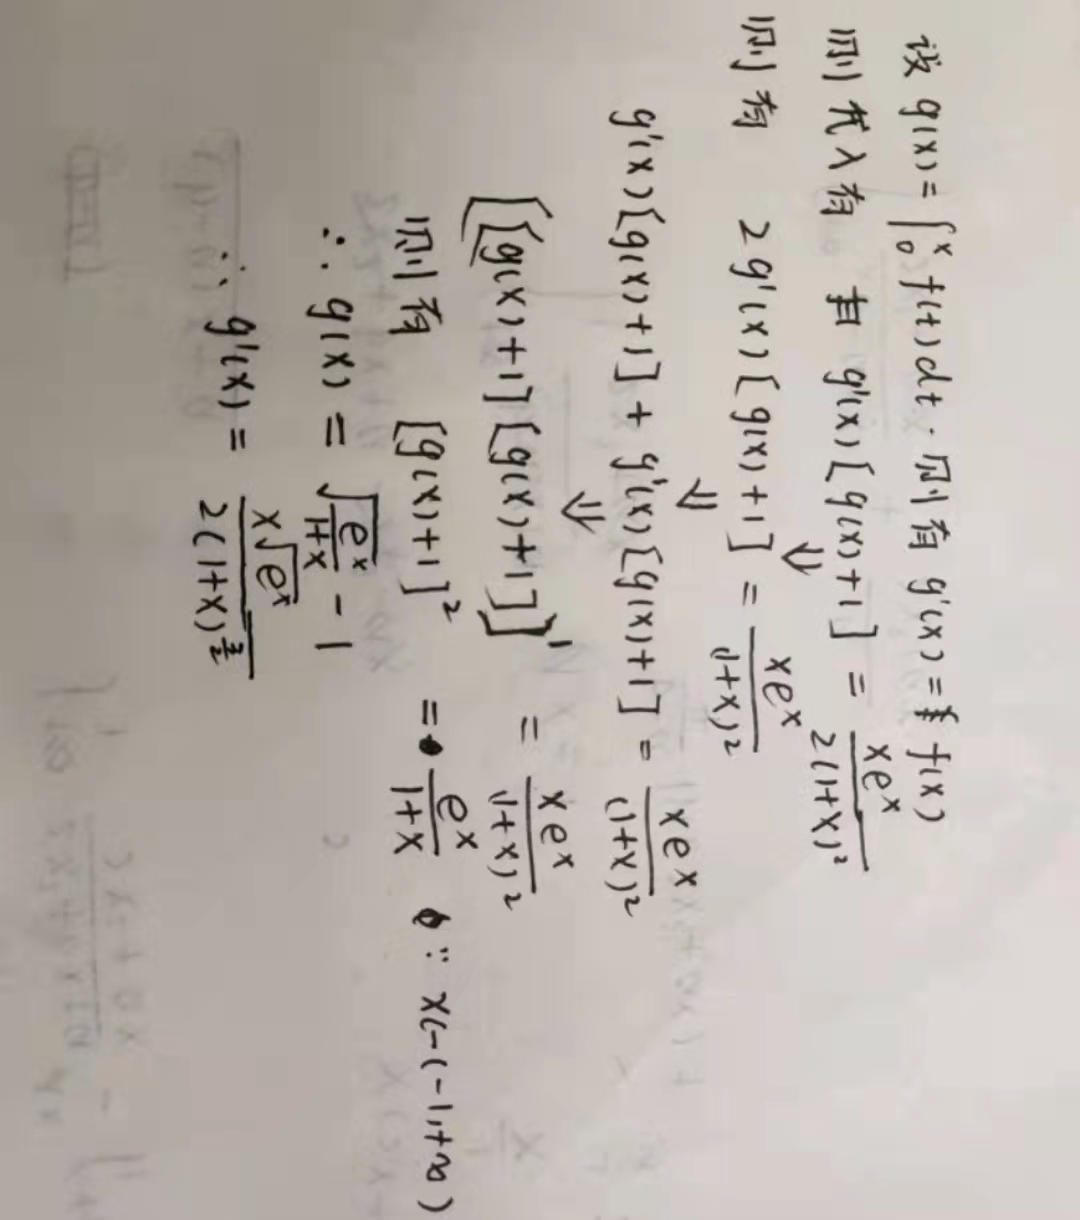 设 g(x) = ∫₀ˣ f(t)dt. 则有 g'(x) = f(x)
则代入有 g'(x)[g(x)+1] = xeˣ / 2(1+x)²
⇓
则有 2g'(x)[g(x)+1] = xeˣ / (1+x)²
⇓
g'(x)[g(x)+1] + g'(x)[g(x)+1] = xeˣ / (1+x)²
⇓
[[g(x)+1][g(x)+1]]' = xeˣ / (1+x)²
则有 [g(x)+1]² = eˣ / 1+x ∵ x∈(-1,+∞)
∴ g(x) = √(eˣ / 1+x) - 1
∴ g'(x) = x√eˣ / 2(1+x)^(3/2)